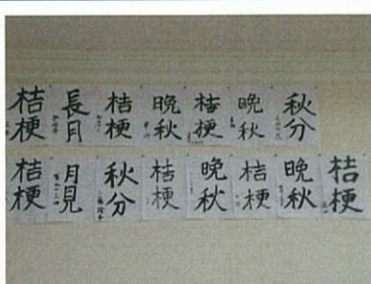 桔梗
長月
桔梗
晩秋
桔梗
晩秋
秋分
桔梗
月見
秋分
桔梗
晩秋
桔梗
晩秋
桔梗